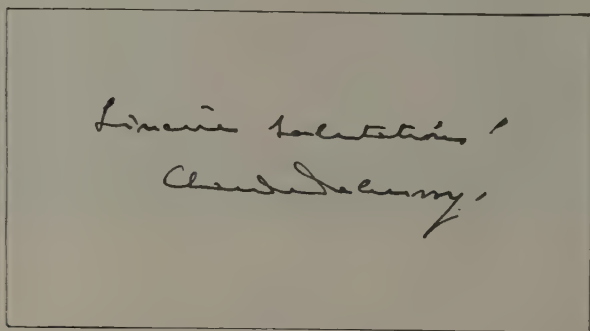 Sincères salutations !
Claude Debussy.